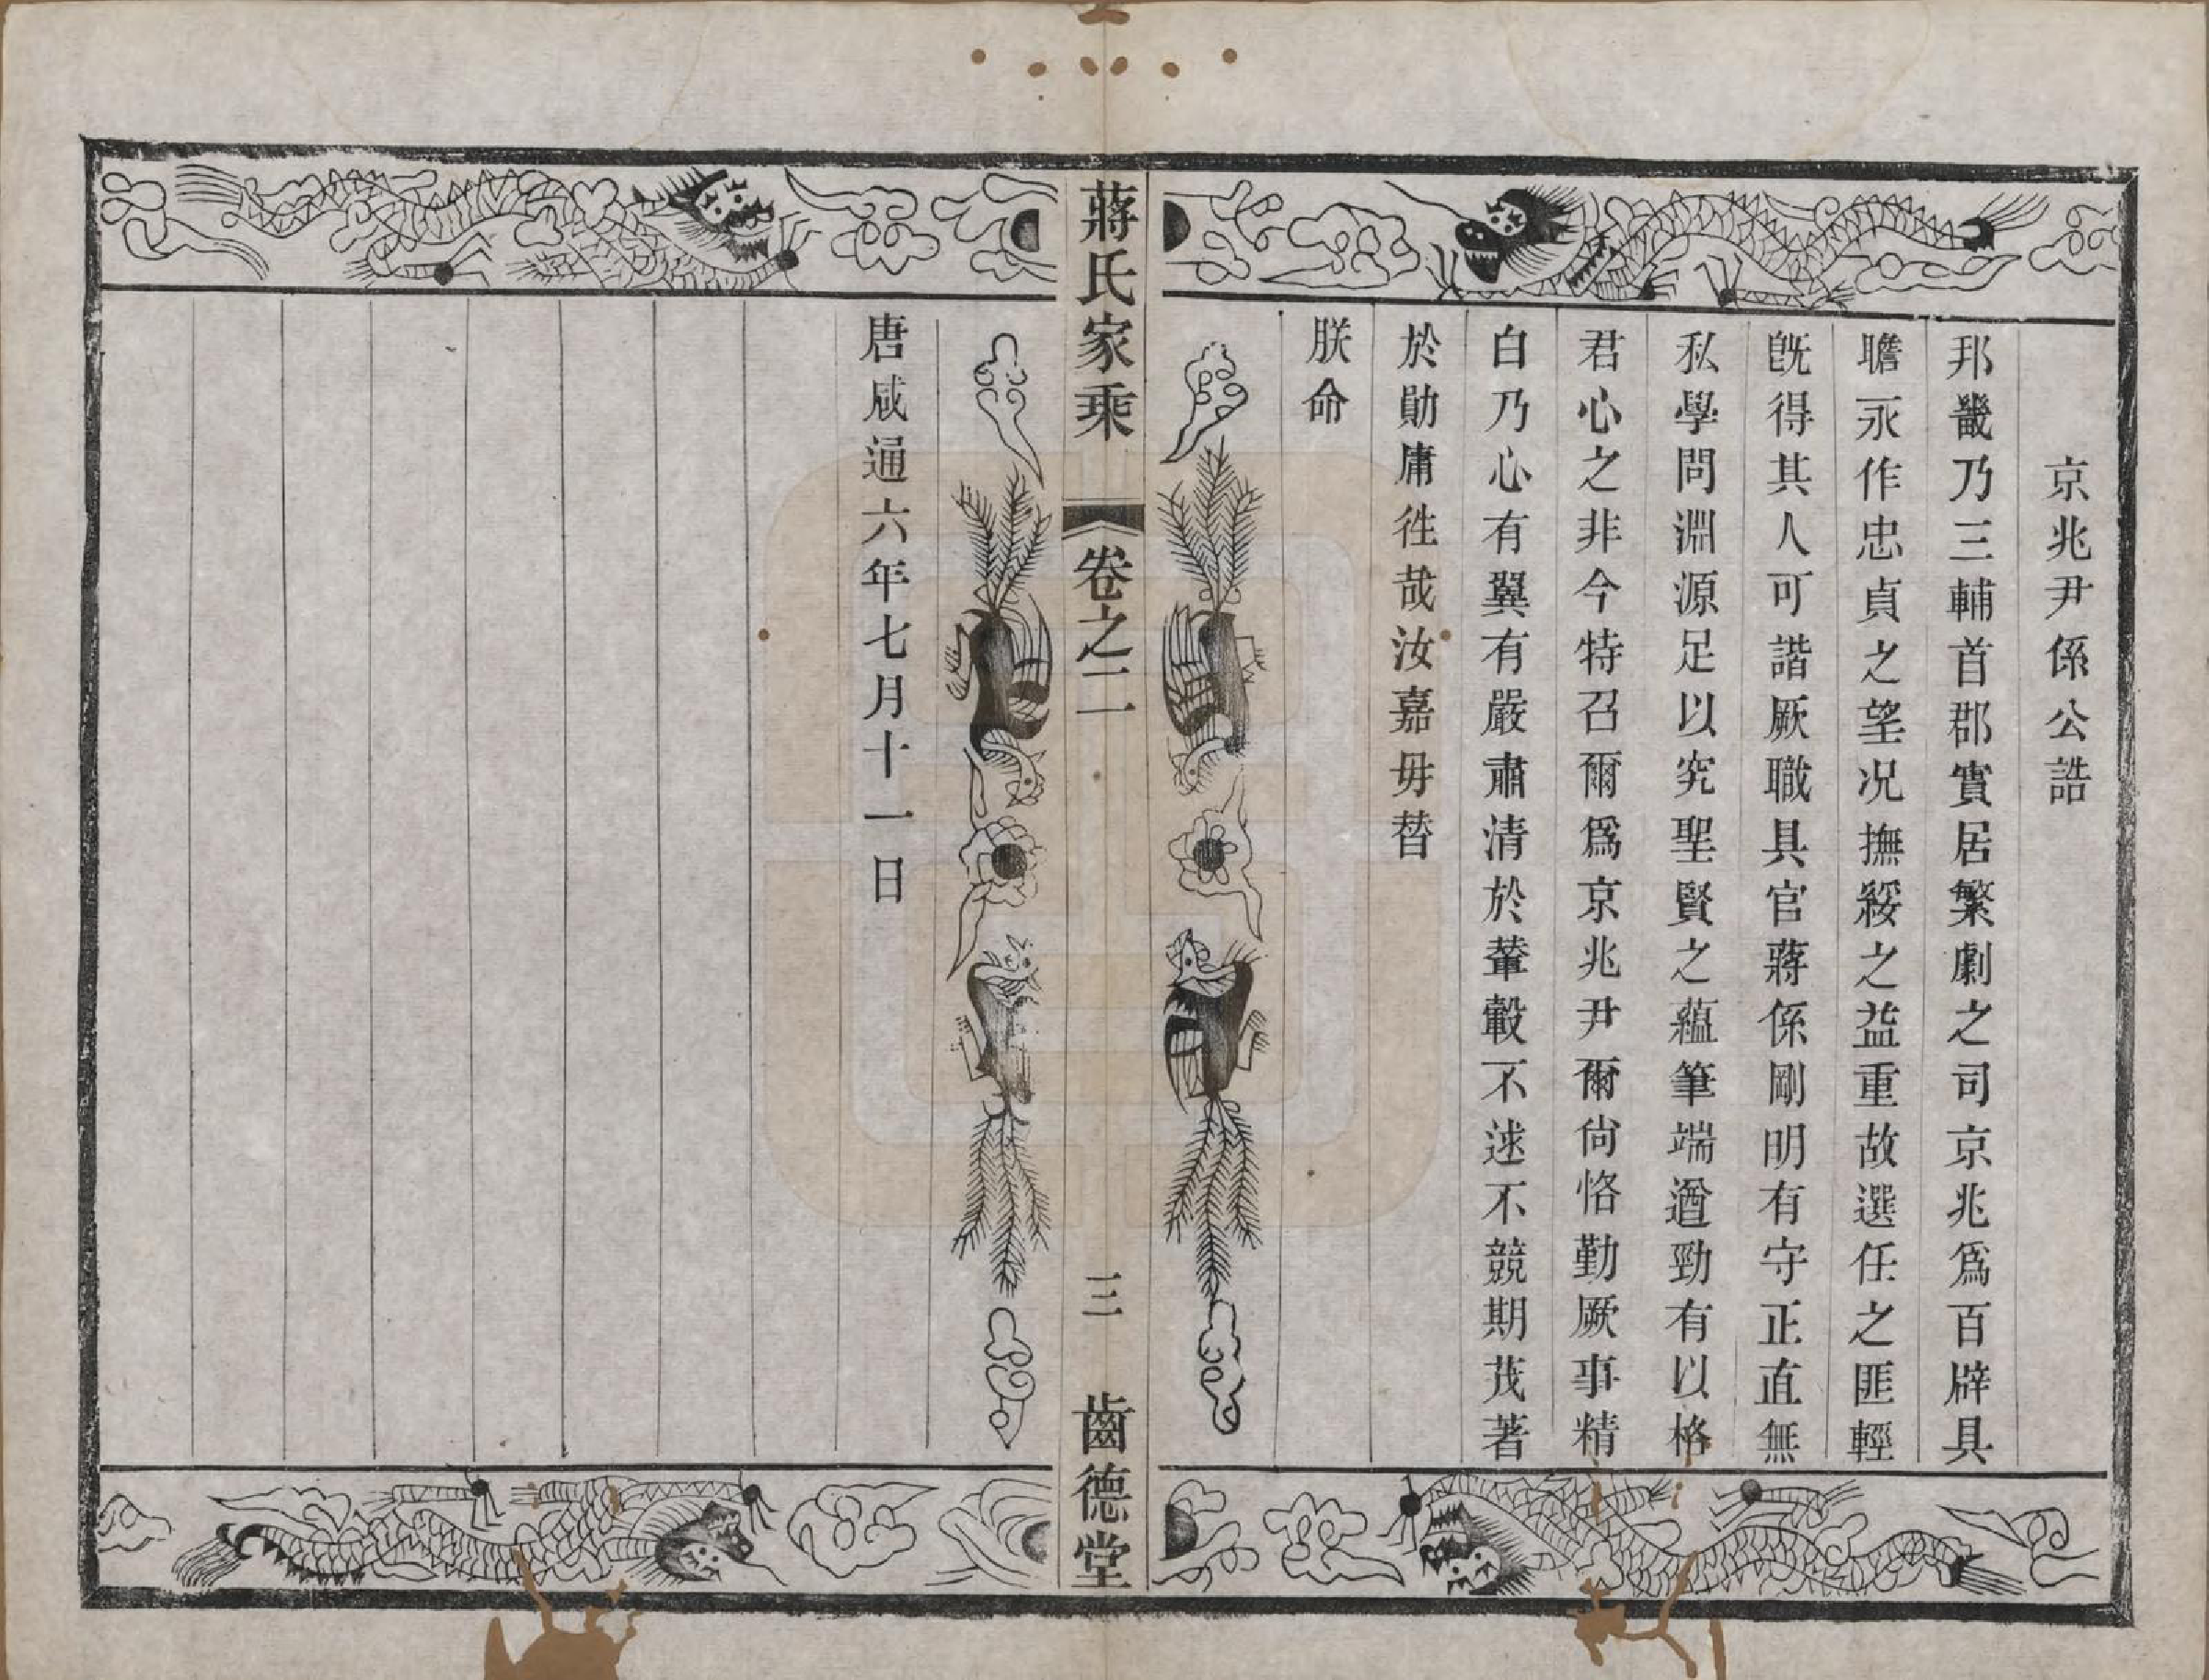 京兆尹係公誥
邦畿乃三輔首郡實居繁劇之司京兆爲百辟具
瞻永作忠貞之望况撫綏之益重故選任之匪輕
旣得其人可諧厥職具官蔣係剛明有守正直無
私學問淵源足以究聖賢之蘊筆端遒勁有以格
君心之非今特召爾爲京兆尹爾尙恪勤厥事精
白乃心有翼有嚴肅清於輦轂不逑不競期茂著
於勛庸徃哉汝嘉毋替
朕命
蔣氏家乘
卷之二
三
齒德堂
唐咸通六年七月十一日